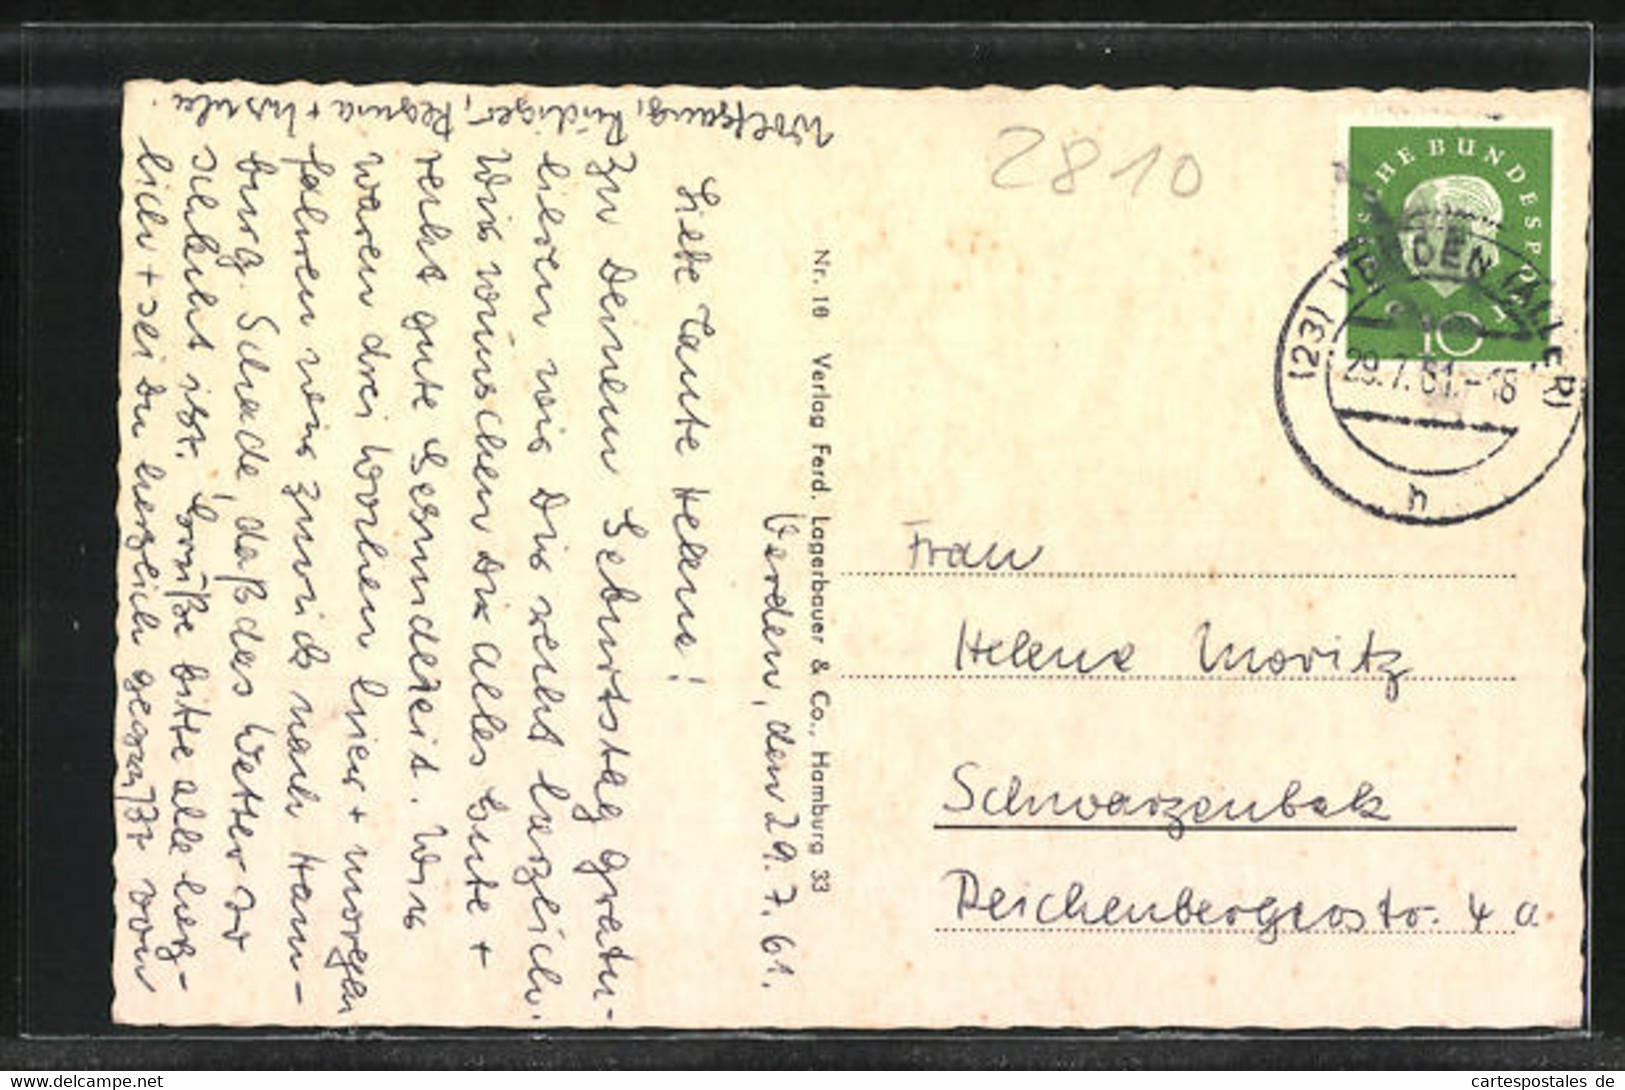 Verden, den 29.7.61.
Liebe Tante Helene!
Zu Deinem Geburtstag gratu-
lieren wir Dir recht herzlich.
Wir wünschen Dir alles Gute +
recht gute Gesundheit. Wir
waren drei Wochen hier + morgen
fahren wir zurück nach Ham-
burg. Schade, daß das Wetter so
schlecht ist. Grüße bitte alle herz-
lich + sei Du herzlich gegrüßt von
Wolfgang, Rüdiger, Regina + Ursula.
Nr. 16 Verlag Ferd. Lagerbauer & Co., Hamburg 33
2810
SCHE BUNDESPOST
10
(23) VERDEN (ALLER)
29.7.61.-18
h
Frau
Helene Moritz
Schwarzenbek
Reichenbergerstr. 4a
cartespostales de
cartespostales de